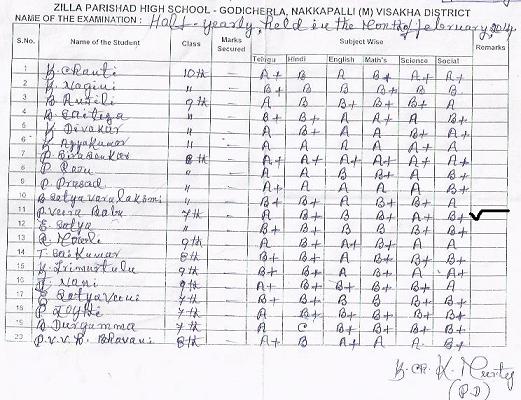 ZILLA PARISHAD HIGH SCHOOL - GODICHERLA, NAKKAPALLI (M) VISAKHA DISTRICT
NAME OF THE EXAMINATION : Half-yearly, held in the Month of February, 2014
S.No. Name of the Student Class Marks Secured Subject Wise Remarks
Telugu Hindi English Math's Science Social
1 K. Chanti 10th — A+ B A B+ A+ A+
2 K. Nagini " — A B B B A A
3 9th — A B B B+ B+ A
4 " — B+ B+ A B+ A B+
5 K. Divakar " — A B+ A A A+ A
6 K. Ayyakumar " — A A A A A+ A
7 8th — A+ A+ A+ A+ A+ A+
8 P. Raju " — A A A B A B+
9 P. Prasad " — A+ A A A A B+
10 B. Satyavaralakshmi " — B+ B+ A B+ B+ A
11 P. Veera Babu 7th — A B+ B B A B+
12 E. Satya " — B+ B+ B B B+ B+
13 R. Mouli 9th — A B+ A+ B+ A A
14 T. Sai Kumar 8th — B+ B+ A B+ B+ B+
15 K. Srimurtulu 9th — B+ B+ A B+ A A+
16 Nani 9th — A+ B+ A B+ A B+
17 E. Satyaveni 7th — B+ B+ B B B+ B+
18 7th — A B+ B+ B+ B+ B+
19 B. Durgamma 7th — A C B+ B+ B+ B+
20 P.V.V.B. Bhavani 8th — A+ B A+ A B+ B+
K. Murty
(P.D)